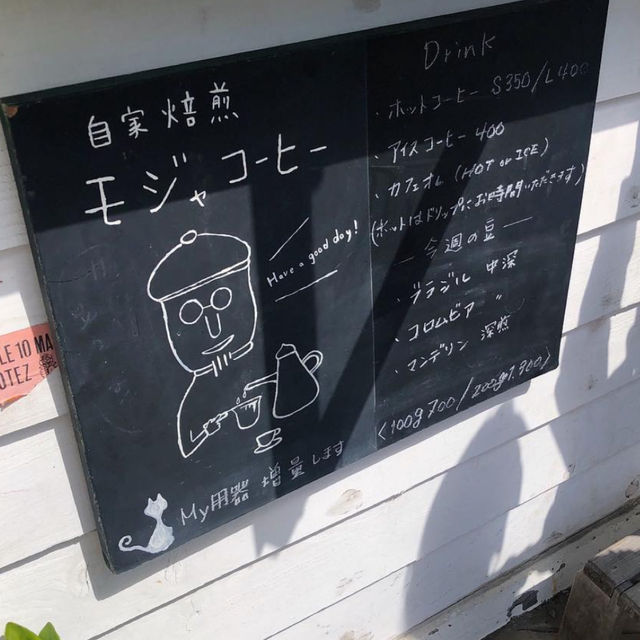 自家焙煎
モジャコーヒー
Have a good day!
My用器 増量します
Drink
・ホットコーヒー S350/L400
・アイスコーヒー 400
・カフェオレ (HOT or ICE)
(ホットはドリップにお時間いただきます)
— 今週の豆 —
・ブラジル 中深
・コロムビア 〃
・マンデリン 深煎
<100g 700 / 200g 1,900>
LE 10 MA
OTEZ